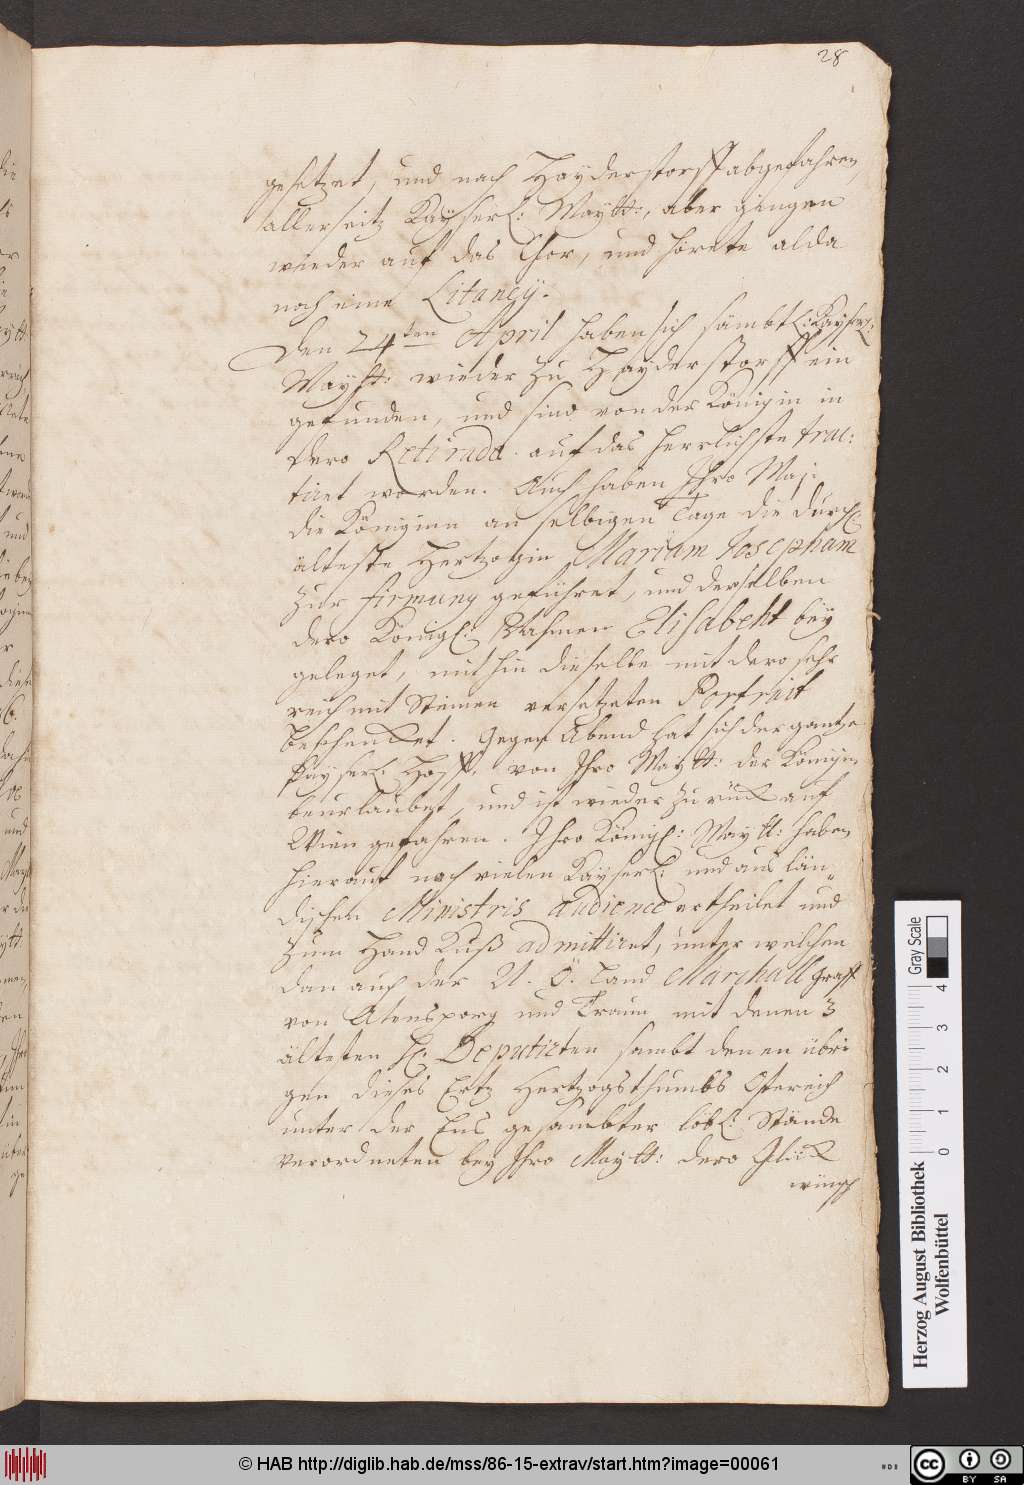 28
gesetzet, und nach Hayderstorff abgefahren,
allerseitz Kayserl: Maytt:, aber gingen
wieder auf das Chor, und hörete alda
noch eine Litaney.
Den 24ten April haben sich sämbtl: Kayserl:
Maytt: wieder zu Hayderstorff ein
gefunden, und sind von der Königin in
dero Retirada auf das herrlichste trac:
tiret worden. Auch haben Ihro Maj:
die Königinn an selbigen Tage die durchl:
älteste Hertzogin Mariam Josepham
zur firmung geführet, und derselben
dero Königl: Nahmen Elisabeht bey
geleget, mit hin dieselbe mit dero sehr
reich mit Steinen versetzeten Portrait
beschencket. Gegen Abend hat sich der gantze
Kayserl: Hoff, von Ihro Maytt: der Königin
beurlaubet, und ist wieder zurück auf
Wien gefahren. Ihro Königl: Maytt: haben
hierauf noch vielen Kayserl: und auslän„
dischen Ministris Audience ertheilet und
zum Hand Kuß admittiret, unter welchen
dan auch der N. Ö. Land Marschall Graff
von Abensperg und Traun mit denen 3
ältesten H: Deputirten sambt denen übri
gen dieses Ertz Hertzogsthumbs Ostereich
unter der Ens gesambter löbl: Stände
verordneten bey Ihro Maytt: dero Glück
wünsch
Gray Scale
0 1 2 3 4
Herzog August Bibliothek
Wolfenbüttel
© HAB http://diglib.hab.de/mss/86-15-extrav/start.htm?image=00061
cc BY SA